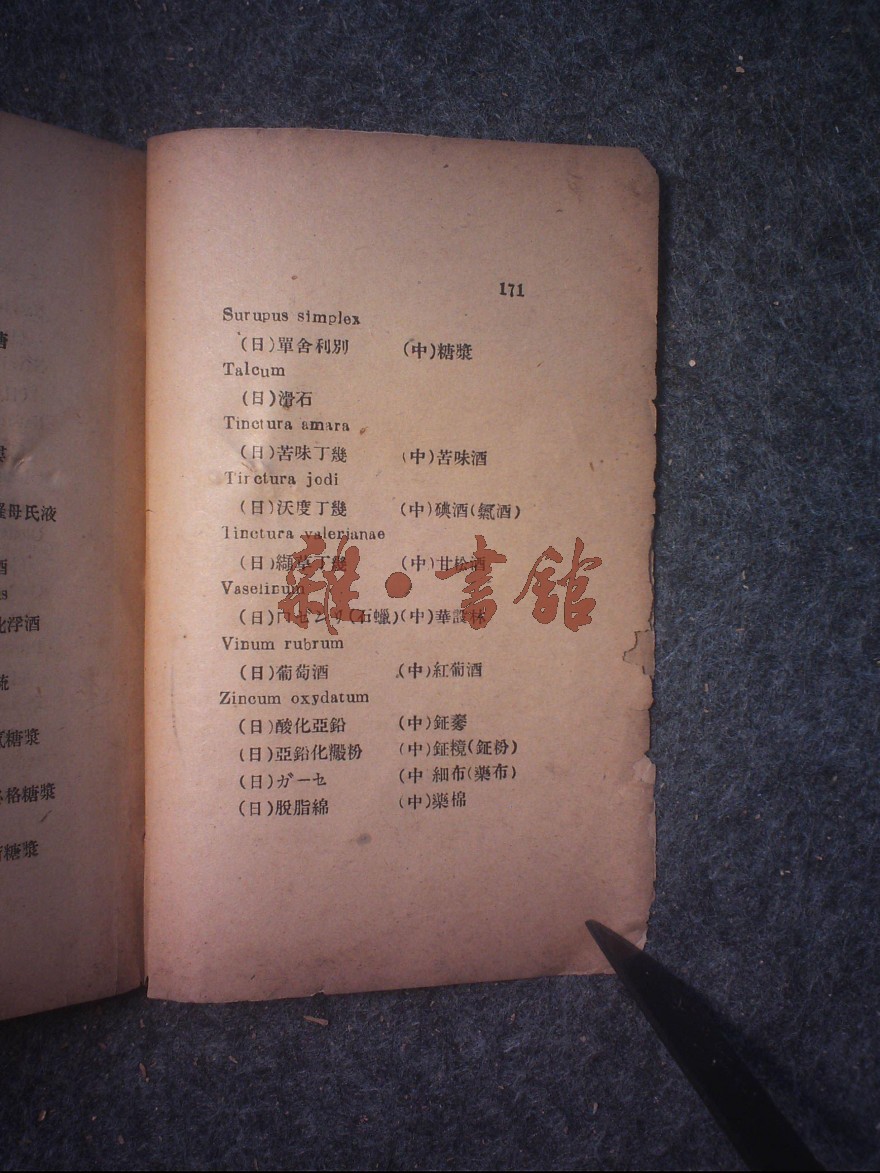 171
Surupus simplex
(日)單舍利別 (中)糖漿
Talcum
(日)滑石
Tinctura amara
(日)苦味丁幾 (中)苦味酒
Tinctura jodi
(日)沃度丁幾 (中)碘酒(氣酒)
Tinctura valerianae
(日)纈草丁幾 (中)甘松酒
Vaselinum
(石蠟)(中)華設林
Vinum rubrum
(日)葡萄酒 (中)紅葡酒
Zincum oxydatum
(日)酸化亞鉛 (中)鉦
(日)亞鉛化澱粉 (中)鉦(鉦粉)
(日)ガーセ (中 細布(藥布)
(日)脫脂綿 (中)藥棉
母氏液
酒
浮酒
糖漿
格糖漿
糖漿
雜·書館